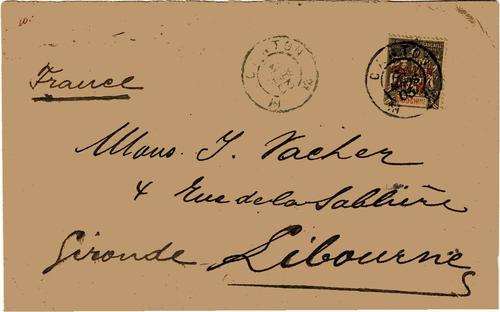 France
CANTON
CANTON
Mons. J. Vacher
4 Rue de la Sablière
Gironde Libourne